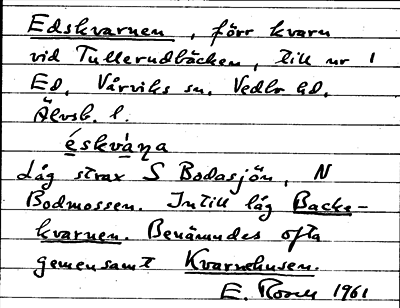 Edskvarnen, förr kvarn
vid Tullerudbäcken, till nr 1
Ed, Vårviks sn, Vedbo hd,
Älvsb. l.
éskvàṇa
Låg strax S Bodasjön, N
Bodmossen. Intill låg Backe-
kvarnen. Benämndes ofta
gemensamt Kvarnehusen.
E. 1961